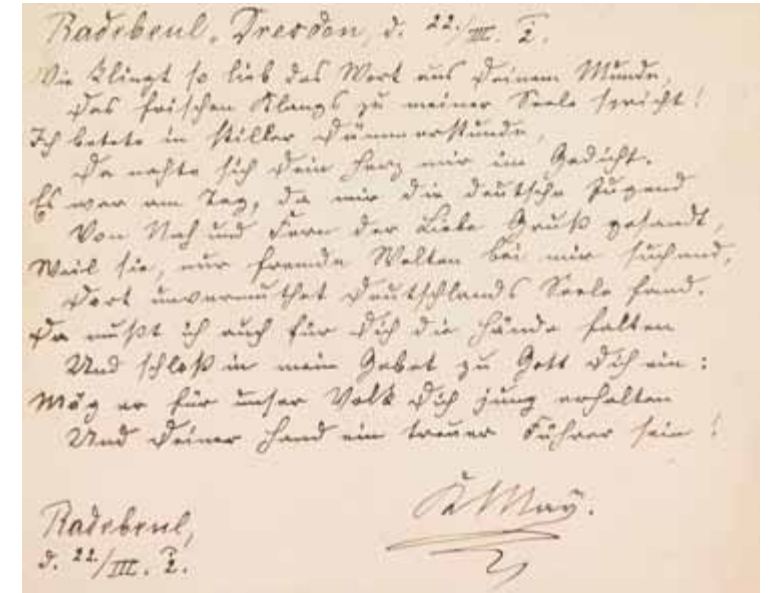 Radebeul-Dresden, d. 22./III. 2.
Wie klingt so lieb das Wort aus Deinem Munde,
Das frischen Klangs zu meiner Seele spricht!
Ich betete in stiller Dämmerstunde,
Da nahte sich Dein Herz mir im Gedicht.
Es war am Tag, da mir die deutsche Jugend
Von Nah und Fern der Liebe Gruß gesandt,
Weil sie, nur fremde Welten bei mir suchend,
Dort unvermuthet Deutschlands Seele fand.
Da mußt ich auch für Dich die Hände falten
Und schloß in mein Gebet zu Gott Dich ein:
Mög er für unser Volk Dich jung erhalten
Und Deiner Hand ein treuer Führer sein!
K May.
Radebeul,
d. 22/III. 2.